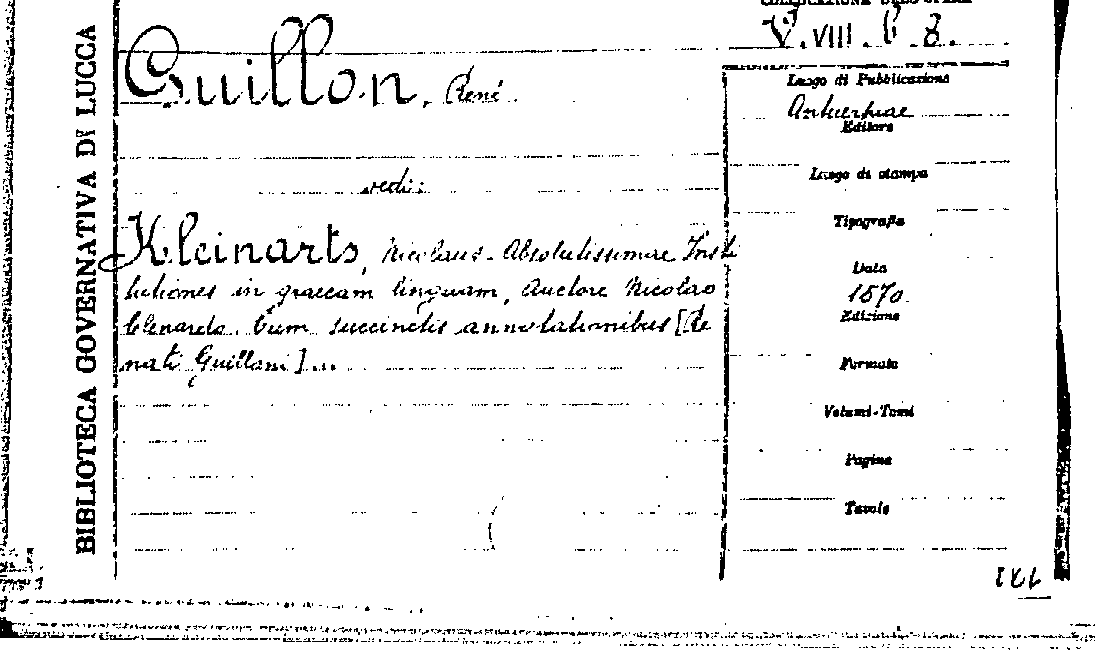 COLLOCAZIONE DELL'OPERA
V. VIII. b 8.
BIBLIOTECA GOVERNATIVA DI LUCCA
Guillon, René
vedi:
Kleinarts, Nicolaus. Absolutissimae Insti
tutiones in graecam linguam, Auctore Nicolao
Clenardo. Cum succinctis annotationibus [Re
nati Guilloni]...
Luogo di Pubblicazione
Antuerpiae
Editore
Luogo di stampa
Tipografia
Data
1570.
Edizione
Formato
Volumi-Tomi
Pagine
Tavole